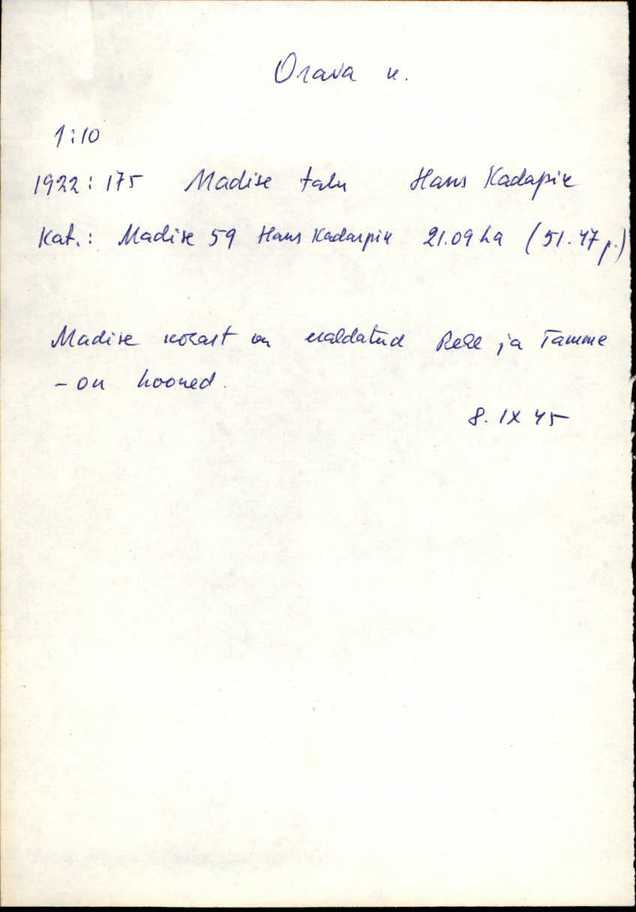 Orava k.
1:10
1922: 175 Madise talu Hans Kadapik
Kat.: Madise 59 Hans Kadarpik 21.09 ha (51.47 p.)
Madise kohast on eraldatud ja Tamme
- on hooned.
8. IX 45